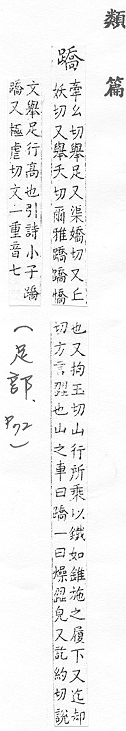 類篇
蹻
牽幺切舉足又渠嬌切又丘
妖切又舉夭切爾雅蹻蹻憍
也又拘玉切山行所乘以鐵如錐施之屨下又迄却
切方言歰也山之車曰蹻一曰燥歰皃又訖約切說
文舉足行高也引詩小子蹻
蹻又極虐切文一重音七
(足部、P72)